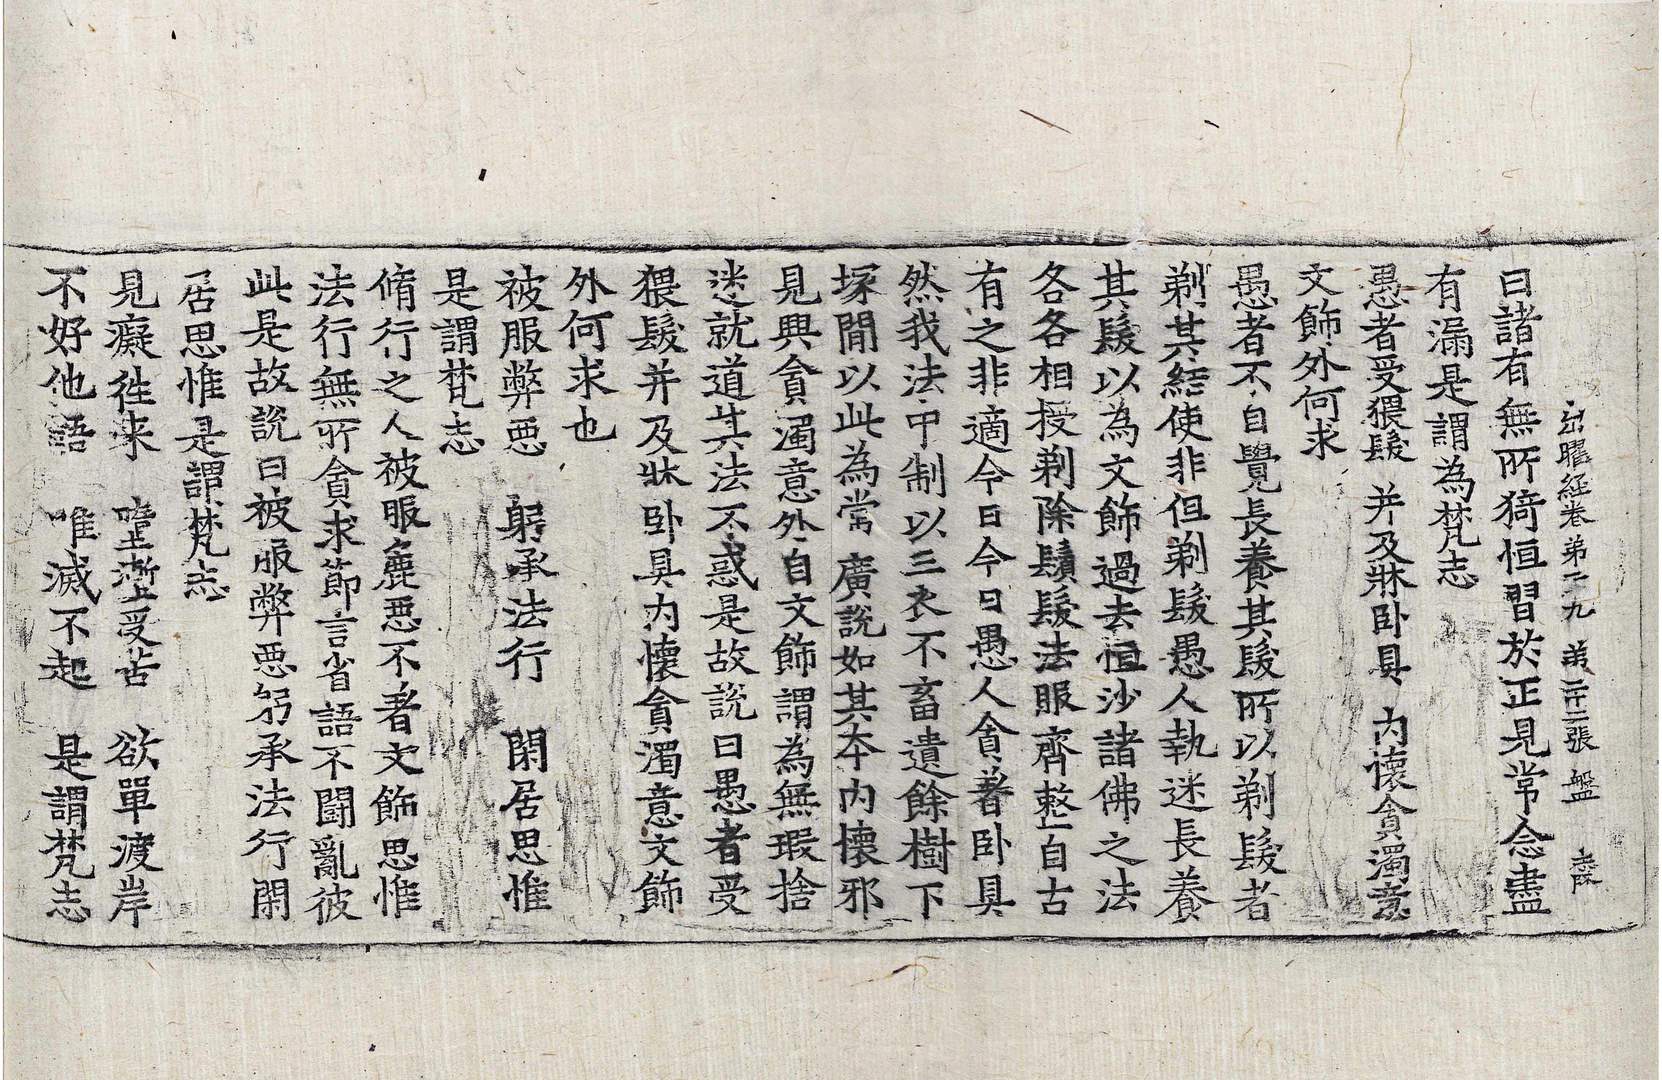 出曜經卷第二十九 第二十二張 盤
曰諸有無所猗恒習於正見常念盡
有漏是謂為梵志
愚者受猥髮 并及牀卧具 內懷貪濁意
文飾外何求
愚者不自覺長養其髮所以剃髮者
剃其結使非但剃髮愚人執迷長養
其髮以為文飾過去恒沙諸佛之法
各各相授剃除鬚髮法服齊整自古
有之非適今日今日愚人貪著卧具
然我法中制以三衣不畜遺餘樹下
塚間以此為常廣說如其本內懷邪
見興貪濁意外自文飾謂為無瑕捨
迷就道其法不惑是故說曰愚者受
猥髮并及牀卧具內懷貪濁意文飾
外何求也
被服弊惡 躬承法行 閑居思惟
是謂梵志
脩行之人被服麁惡不著文飾思惟
法行無所貪求節言省語不鬪亂彼
此是故說曰被服弊惡躬承法行閑
居思惟是謂梵志
見癡往来 墮塹受苦 欲單渡岸
不好他語 唯滅不起 是謂梵志